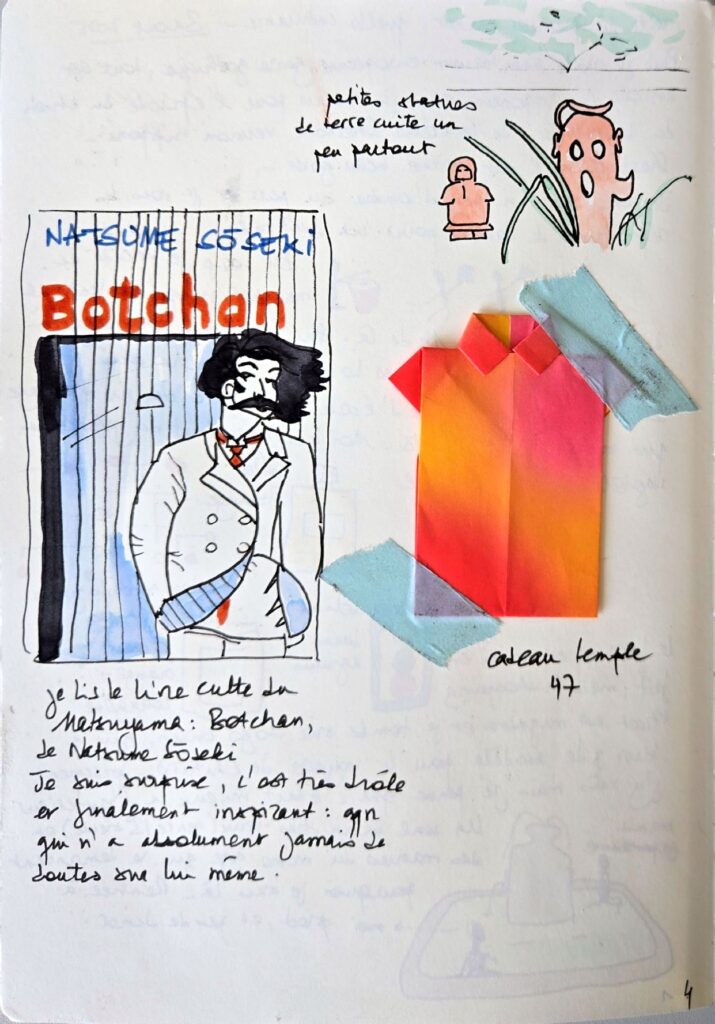 petites statues
de terre cuite un
peu partout
NATSUME SŌSEKI
Botchan
cadeau temple
47
je lis le livre culte du
Matsuyama : Botchan,
de Natsume Sōseki
Je suis surprise, c'est très drôle
et finalement inspirant : qqn
qui n'a absolument jamais de
doutes sur lui même.
4